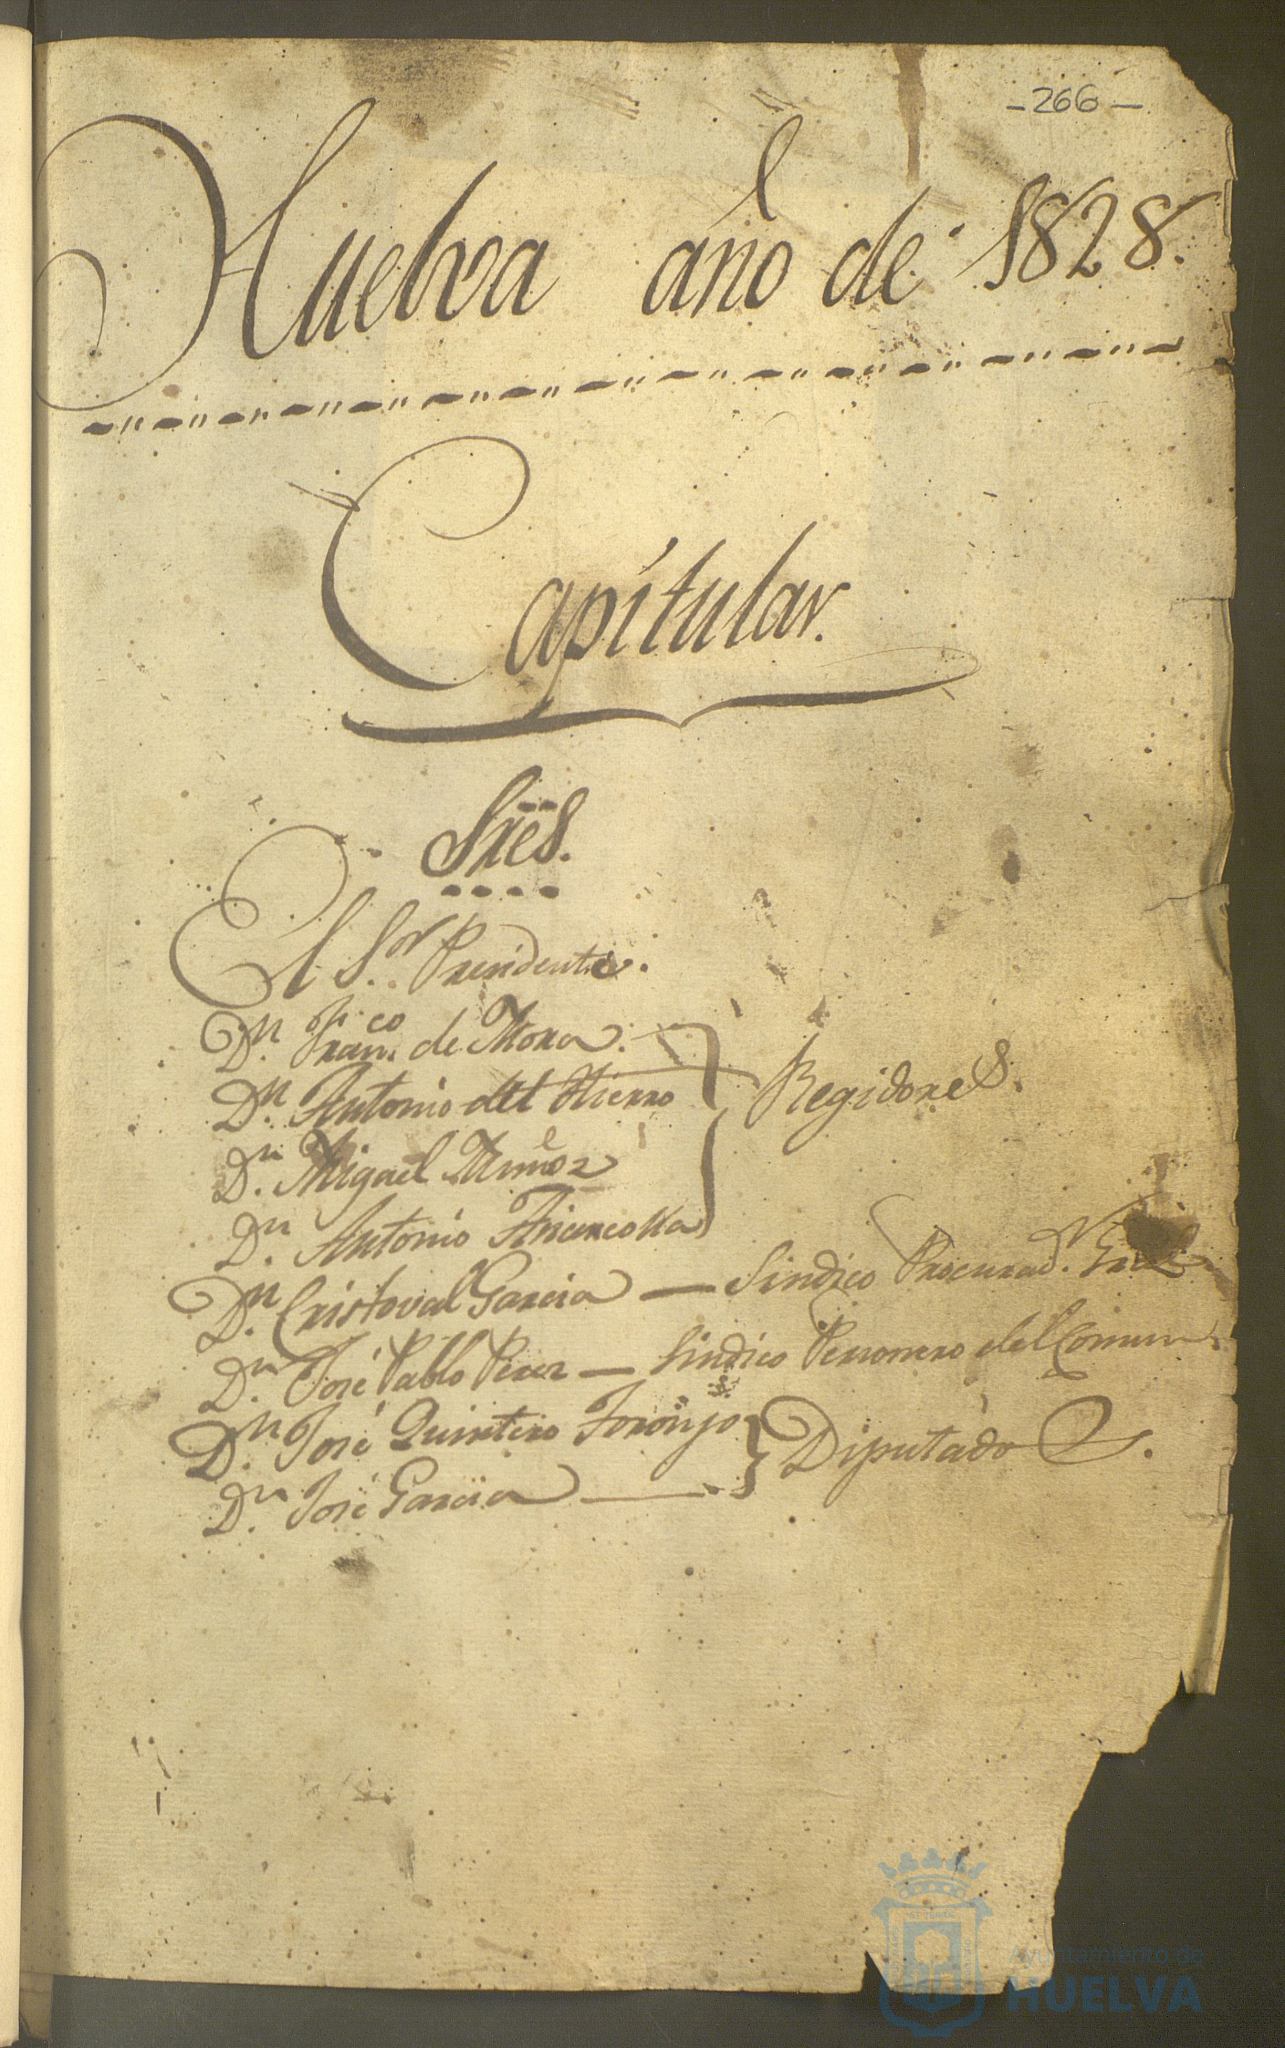 -266-
Huelva año de 1828.
Capitular.
Sres.
El Sor. Presidente.
Dn. Franco. de Mora.
Dn. Antonio del Hierro
Dn. Miguel Muñoz
Regidores.
Dn. Antonio
Dn. Cristoval Garcia — Sindico Procurador. Gral
Dn. José Pablo Perez — Sindico Personero del Comun.
Dn. José Quintero Toronjo
Dn. José Garcia
Diputados.
Ayuntamiento de
HUELVA